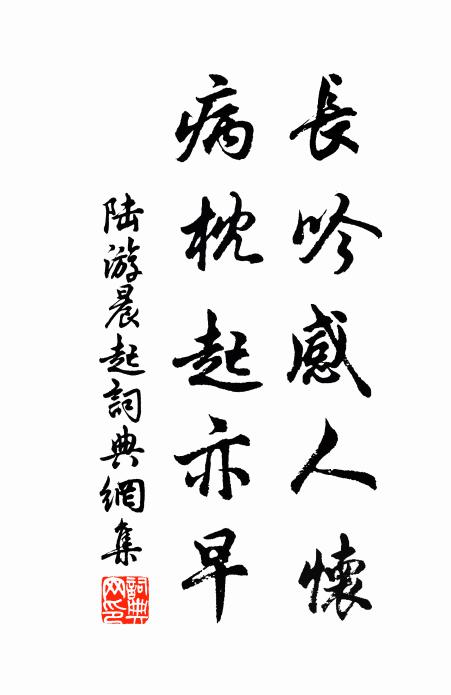 長吟感人懷
病枕起亦早
陆游晨起詞典網集
詞典網印